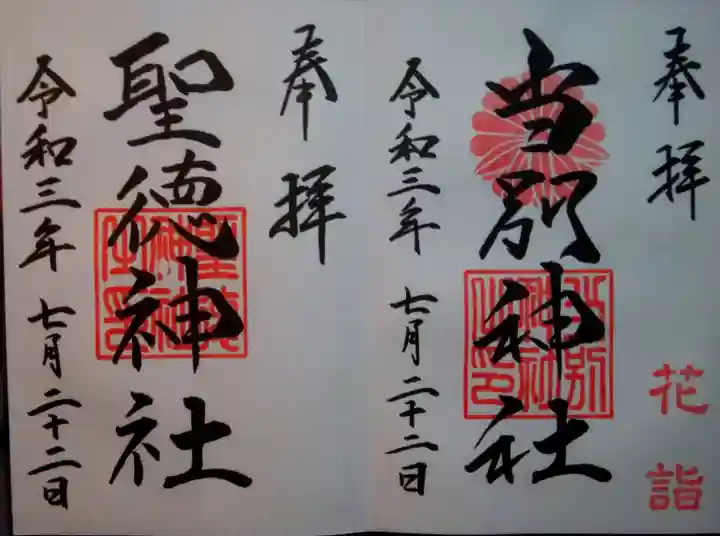 奉拝
当別神社
令和三年 七月二十二日
花詣
奉拝
聖徳神社
令和三年 七月二十二日